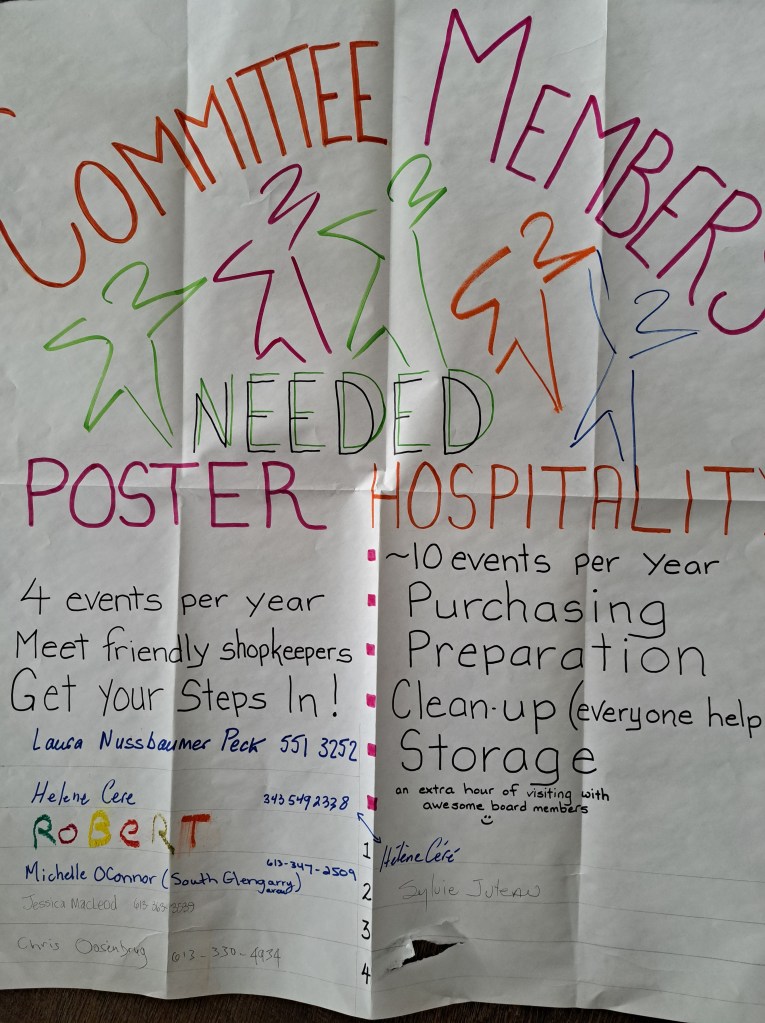 COMMITTEE MEMBERS
NEEDED
POSTER
4 events per year
Meet friendly shopkeepers
Get Your Steps In!
Laura Nussbaumer Peck 551 3252
Helene Cere 343 549 2338
ROBERT
Michelle OConnor (South Glengarry area) 613-347-2509
Jessica MacLeod
Chris 613-330-4934
HOSPITALITY
~10 events per year
Purchasing
Preparation
Clean-up (everyone help
Storage
an extra hour of visiting with
awesome board members
1 Hélène Céré
2 Sylvie Juteau
3
4